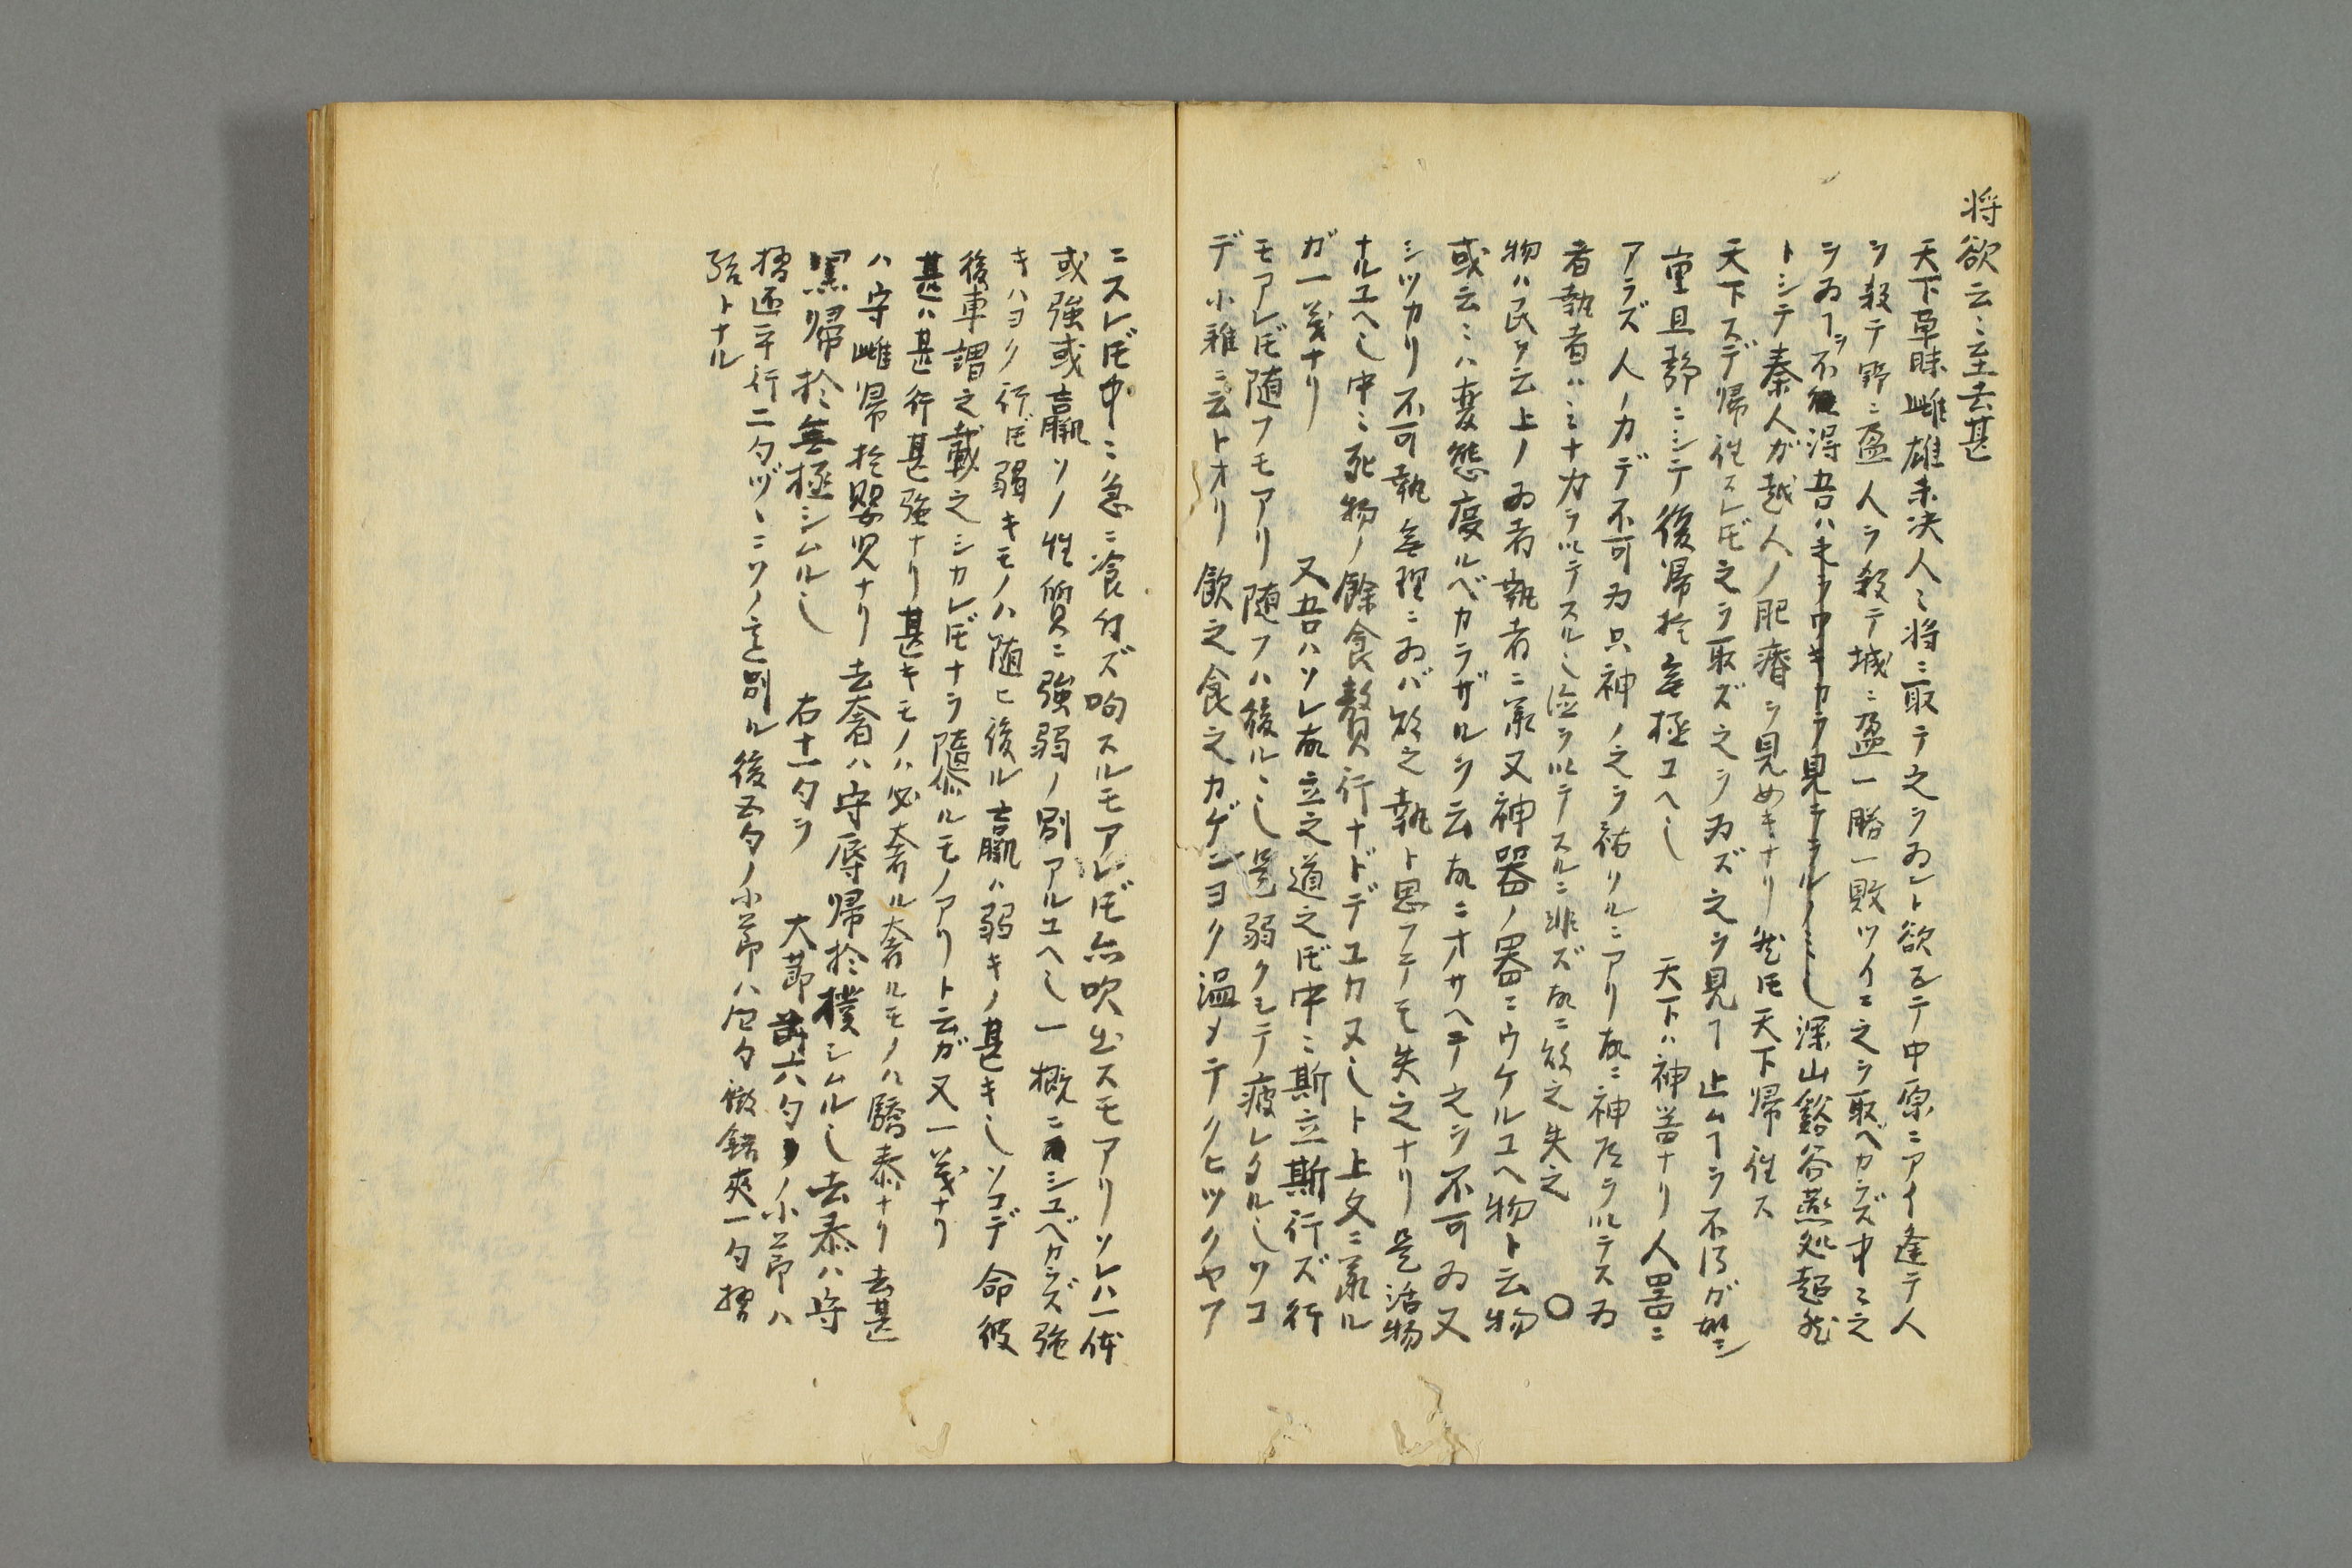 将欲云〻至去甚
天下草昧雌雄未决人〻将ニ取テ之ヲ為ント欲シテ中原ニアイ逢テ人
ヲ殺テ野ニ盈人ヲ殺テ城ニ盈一勝一敗ツイニ之ヲ取ベカラズ中〻之
ヲ為ヿヲ不得吾ハ深山谿谷燕処超然
トシテ秦人ガ越人ノ肥瘠ヲ見如キナリ然ㇳモ天下帰往ス
天下スデ帰往スレㇳモ之ヲ取ズ之ヲ為ズ之ヲ見ヿ止ムヿヲ不得ガ如シ
重且静ニシテ後帰於無極ユヘ〆 天下ハ神器ナリ人器ニ
アラズ人ノ力デ不可為只神ノ之ヲ祐リルニアリ故ニ神道ヲ以テス為
者執者ハミナ力ヲ以テスル〆道ヲ以テスルニ非ズ故ニ敗之失之 ○
物ハ民ヲ云上ノ為者執者ニ承又神器ノ器ニウケルユヘ物ト云物
或云〻ハ変態度ルベカラザルヲ云故ニオサヘテ之ヲ不可為又
シツカリ不可執無理ニ為バ敗之執ト思フテモ失之ナリ是活物
ナルユヘ〆中〻死物ノ餘食贅行ナドデユカヌ〆ト上文ニ承ル
ガ一義ナリ 又吾ハソレ故立之道之ㇳモ中〻斯立斯行ズ行
モアレㇳモ随フモアリ随フハ後ル〻〆是弱クシテ疲レタル〆ソコ
デ小雅ニ云トオリ飲之食之カゲンヨク温メテクヒツクヤフ
ニスレㇳモ中〻急ニ食付ズ呴スルモアレㇳモ亦吹出スモアリソレハ一体
或強或羸ソノ性質ニ強弱ノ別アルユヘ〆一概ニシユベカラズ強
キハヨク行ㇳモ弱キモノハ随ヒ後ル羸ハ弱キノ甚キ〆ソコデ命彼
後車謂之載之シカレㇳモナヲ隳ルモノアリト云ガ又一義ナリ
甚ハ甚行甚強ナリ甚キモノハ必奢ル奢ルモノハ驕泰ナリ去甚
ハ守雌帰於嬰児ナリ 去奢ハ守辱帰於樸シムル〆去泰ハ守
黒帰於無極シムル〆 右十一句ヲ 大節 六句ノ小節ハ
摺迊平行二句ヅ〻ニツノ意別ル後五句ノ小節ハ四句微錯爽一句摺
殆トナル